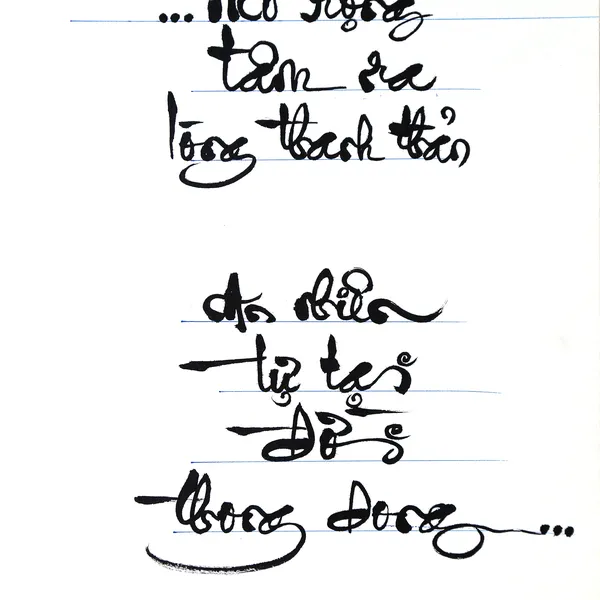 ... Mở rộng
tâm ra
lòng thanh thản
An nhiên
tự tại
đời
thong dong ...